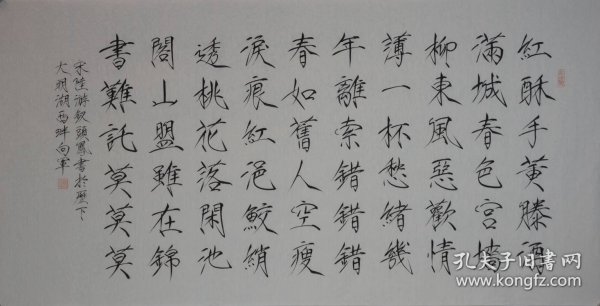 紅酥手黄滕酒
滿城春色宮墻
柳東風惡歡情
薄一杯愁緒幾
年離索錯錯錯
春如舊人空瘦
淚痕紅浥鮫綃
透桃花落閑池
閣山盟雖在錦
書難託莫莫莫
宋陸游釵頭鳳書於歷下
大明湖西畔向軍
孔夫子旧书网